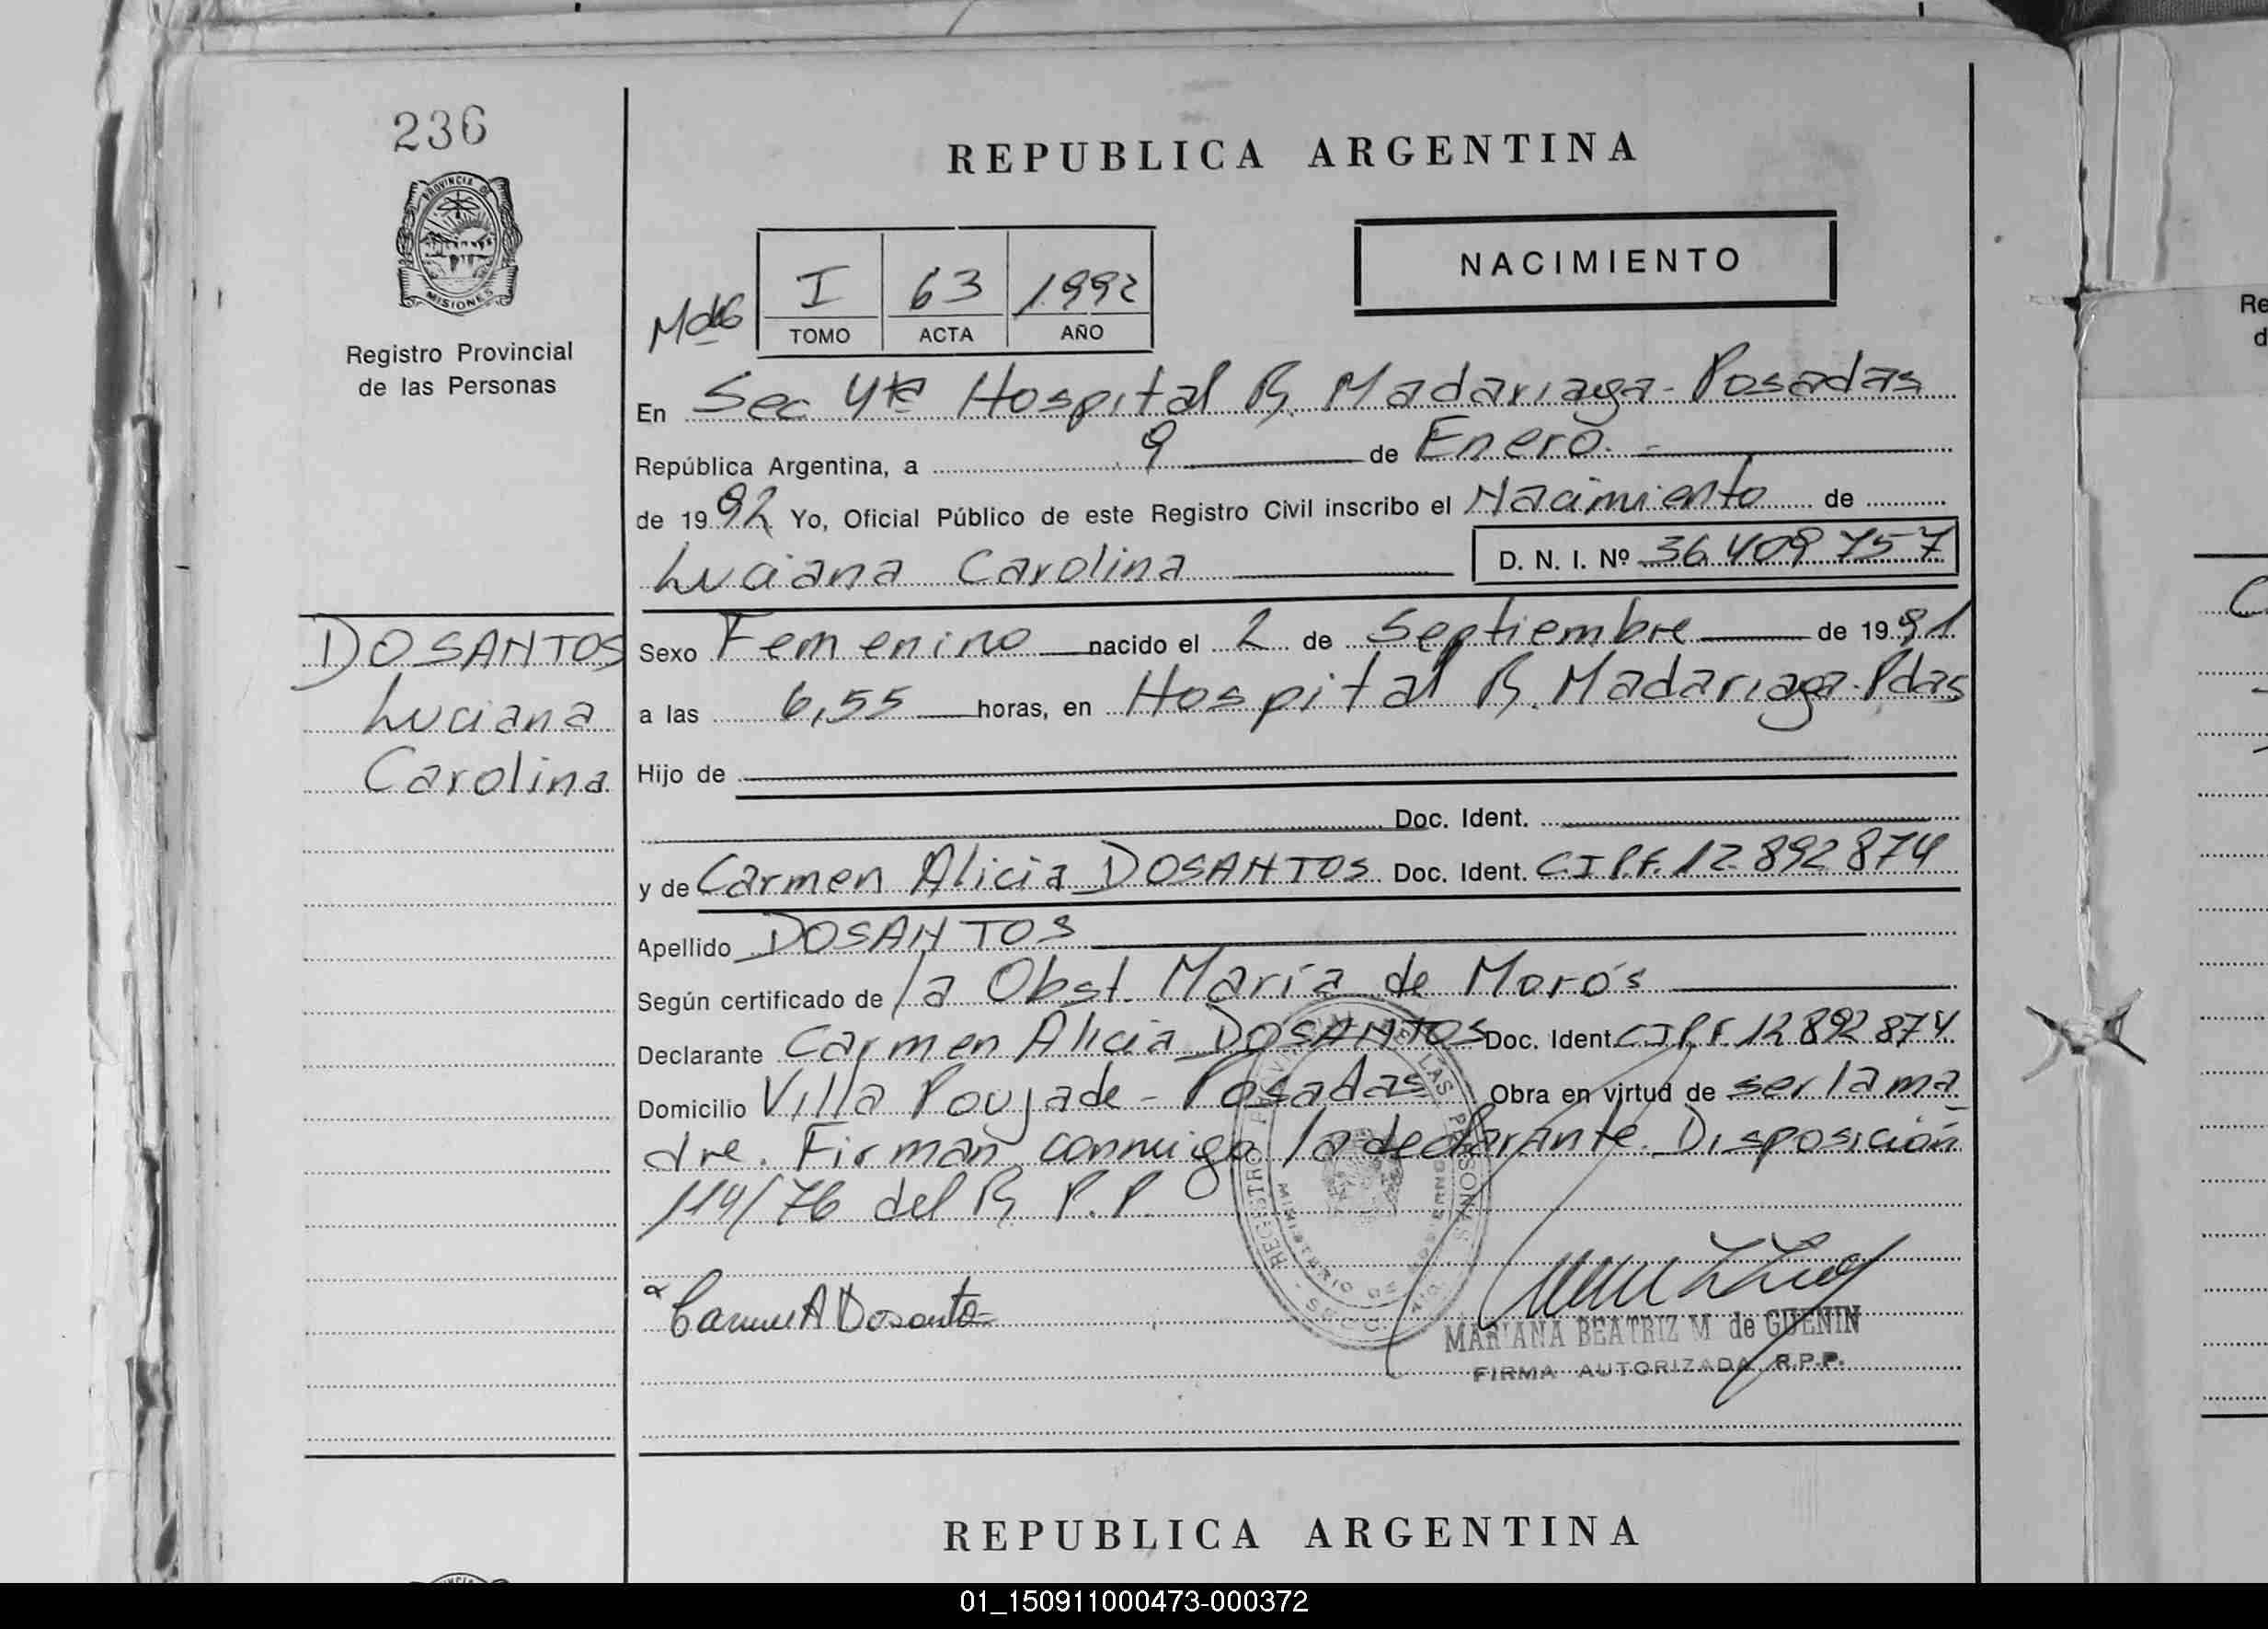 236
REPUBLICA ARGENTINA
PROVINCIA DE
MISIONES
Registro Provincial
de las Personas
NACIMIENTO
I 63 1992
TOMO ACTA AÑO
En Sec 4ta Hospital R. Madariaga - Posadas
República Argentina, a 9 de Enero. -
de 1992 Yo, Oficial Público de este Registro Civil inscribo el Nacimiento de
Luciana Carolina D. N. I. Nº 36.409.757
DOSANTOS
Luciana
Carolina
Sexo Femenino nacido el 2 de Septiembre de 1991
a las 6,55 horas, en Hospital R. Madariaga - Pdas
Hijo de
Doc. Ident.
y de Carmen Alicia DOSANTOS Doc. Ident. C.I.P.F. 12.892.874
Apellido DOSANTOS
Según certificado de la Obst. María de Morós
Declarante Carmen Alicia DOSANTOS Doc. Ident. C.I.P.F. 12 892 874
Domicilio Villa Poujade - Posadas Obra en virtud de ser la ma
dre. Firman conmigo la declarante. Disposición
114/76 del R. P. P.
Carmen A Dosanto
MARIANA BEATRIZ M de GUENIN
FIRMA AUTORIZADA R.P.P.
REPUBLICA ARGENTINA
01_150911000473-000372